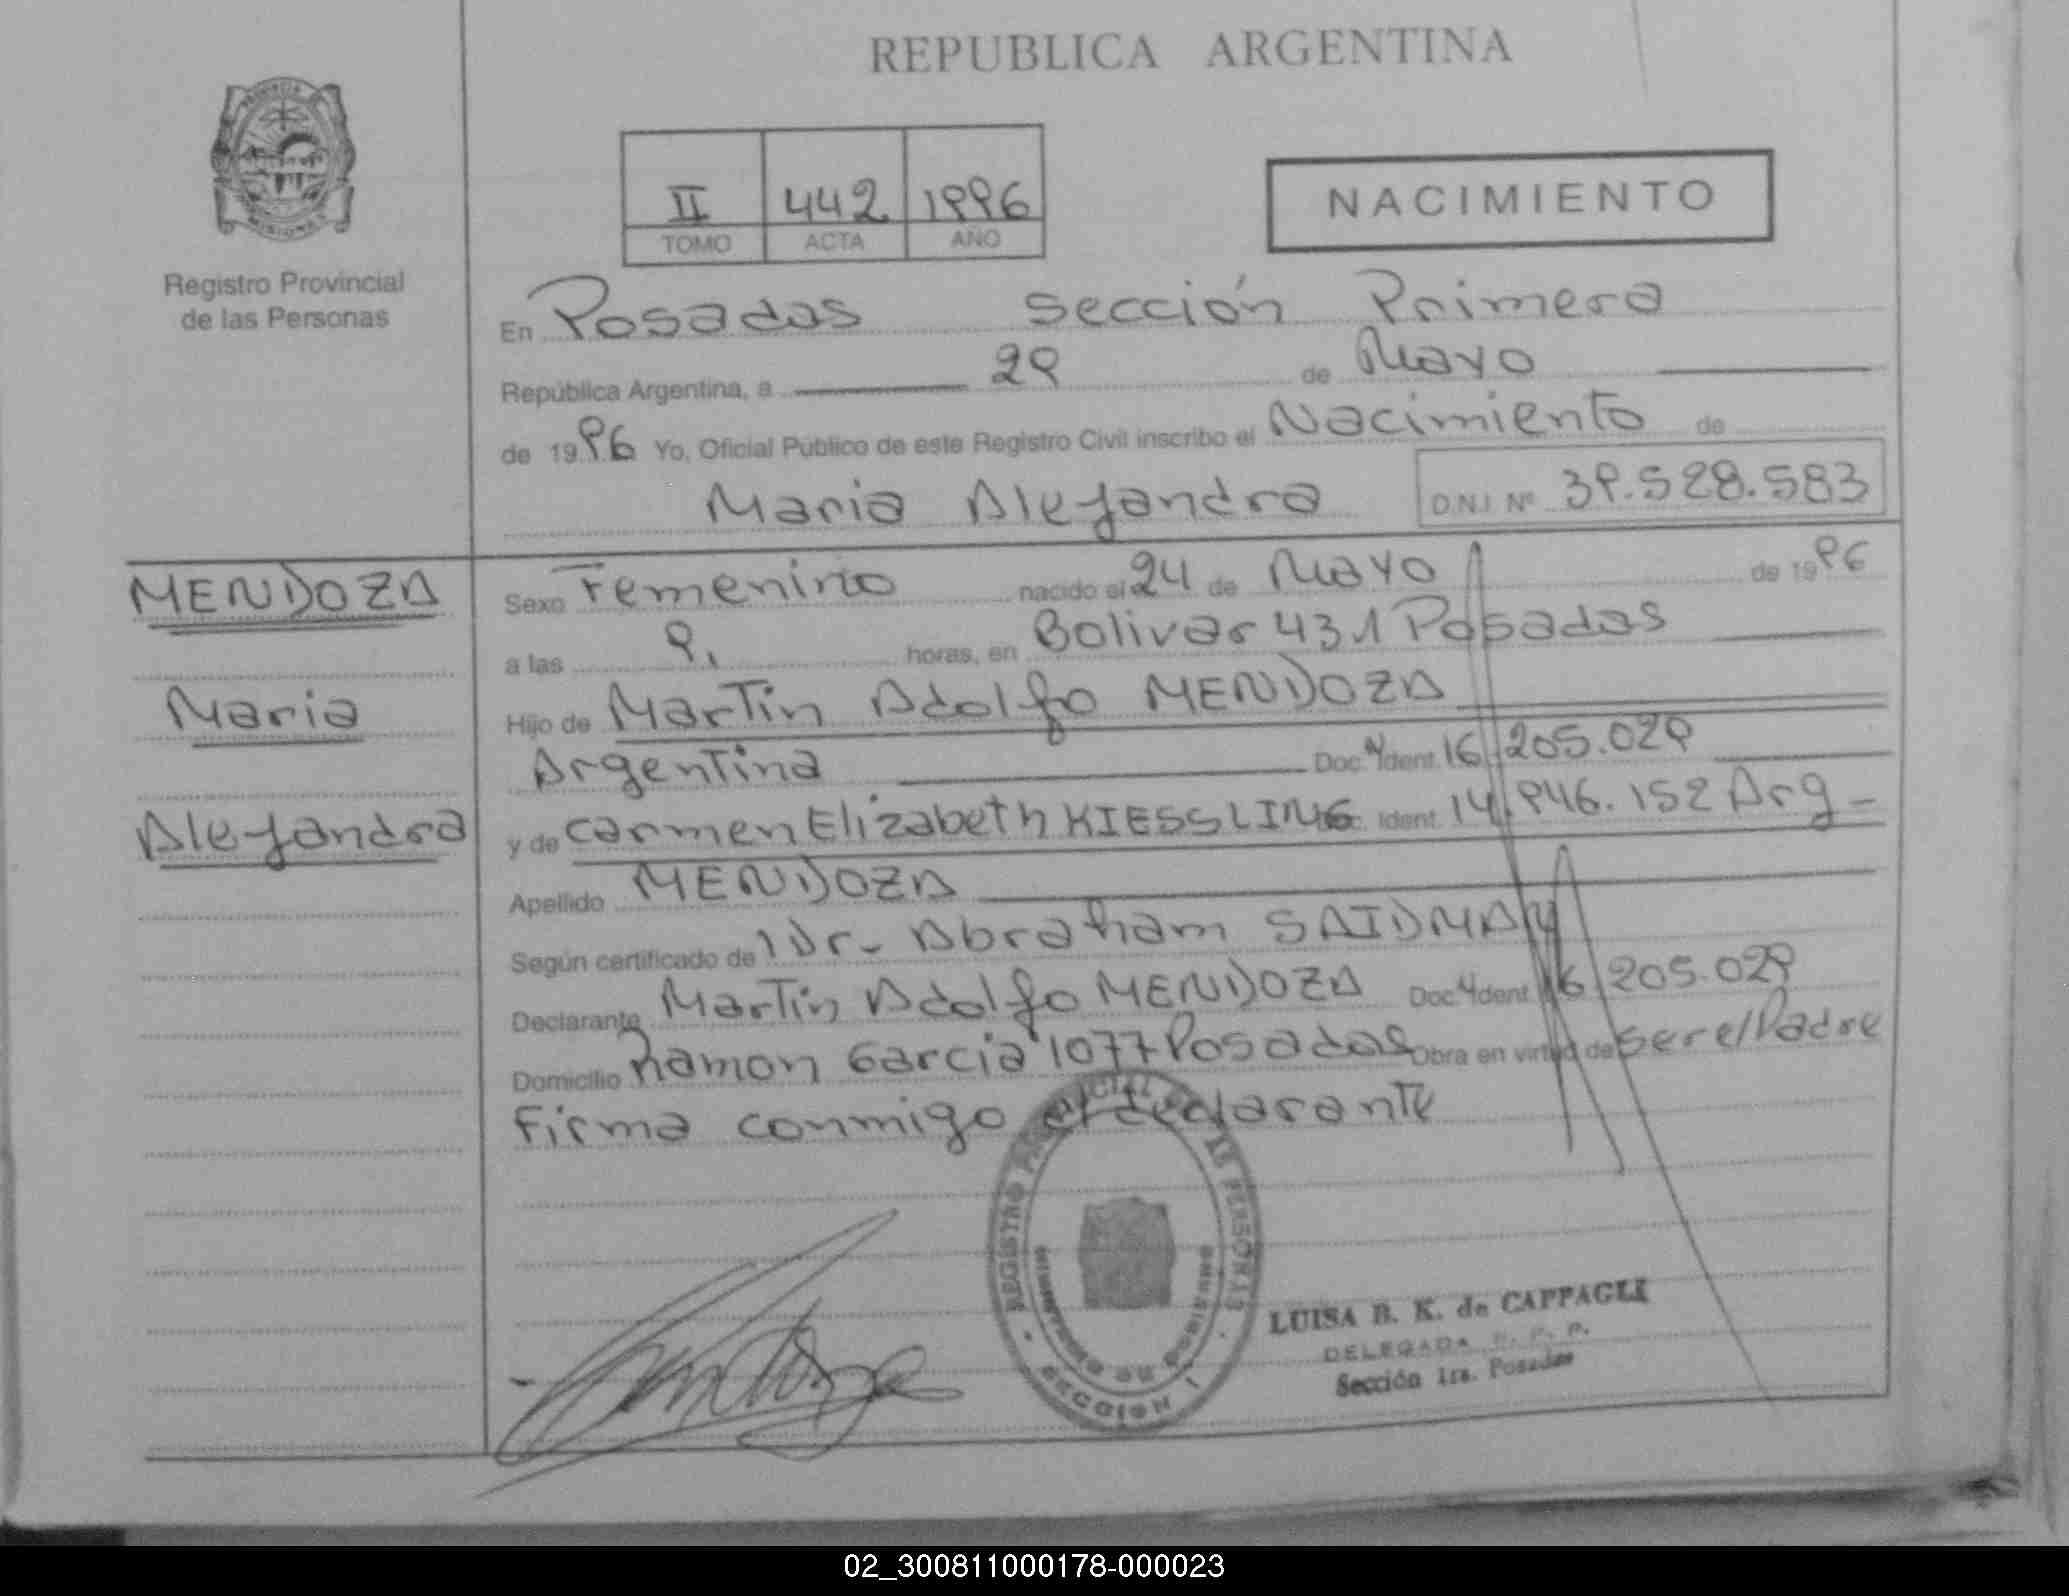 REPUBLICA ARGENTINA
II 442 1996
TOMO ACTA AÑO
NACIMIENTO
Registro Provincial
de las Personas
En Posadas Sección Primera
República Argentina, a 29 de Mayo
de 1996 Yo, Oficial Público de este Registro Civil inscribo el Nacimiento de
Maria Alejandra D.N.I. Nº 39.528.583
MENDOZA
Maria
Alejandra
Sexo Femenino nacido el 24 de Mayo de 1996
a las 9, horas, en Bolivar 431 Posadas
Hijo de Martin Adolfo MENDOZA
Argentina Doc. Ident. 16.205.029
y de Carmen Elizabeth KIESSLING Doc. Ident. 14.946.152 Arg-
Apellido MENDOZA
Según certificado de Dr. Abraham SAIDMAN
Declarante Martin Adolfo MENDOZA Doc. Ident. 16.205.029
Domicilio Ramon Garcia 1077 Posadas Obra en virtud de ser el Padre
Firma conmigo el declarante
REGISTRO PROVINCIAL DE LAS PERSONAS
SECCION 1
LUISA B. K. de CAPPAGLI
DELEGADA R. P. P.
Sección 1ra. Posadas
02_300811000178-000023